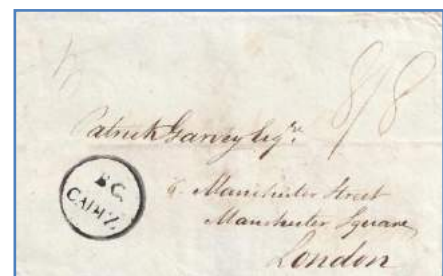 8/8
Patrick Garvey Esqre.
B C.
CADIZ
6. Manchester Street
Manchester Square
London